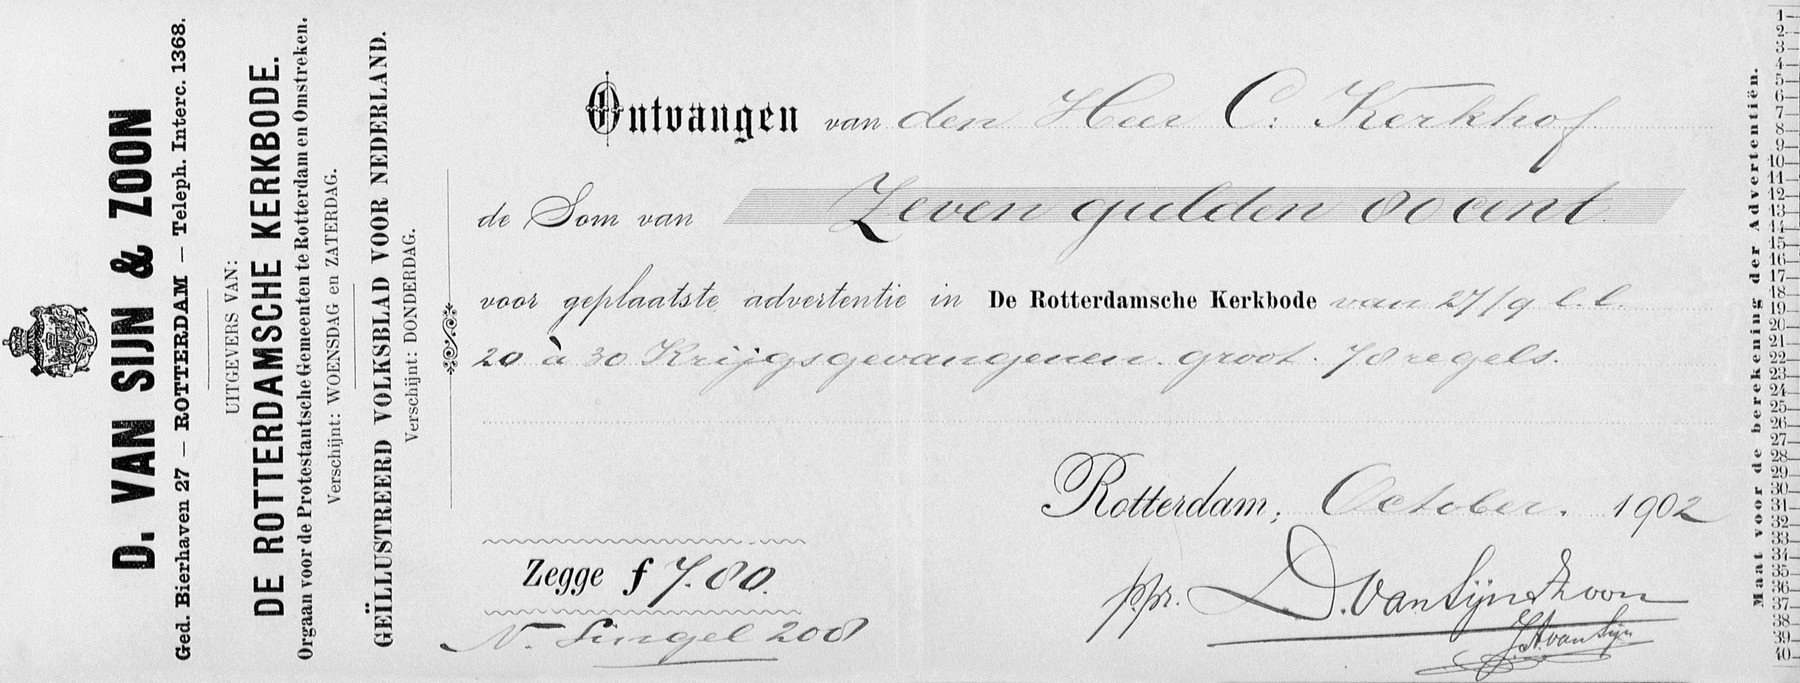 D. VAN SIJN & ZOON
Ged. Bierhaven 27 — ROTTERDAM — Teleph. Interc. 1368.
UITGEVERS VAN:
DE ROTTERDAMSCHE KERKBODE.
Orgaan voor de Protestantsche Gemeenten te Rotterdam en Omstreken.
Verschijnt: WOENSDAG en ZATERDAG.
GEÏLLUSTREERD VOLKSBLAD VOOR NEDERLAND.
Verschijnt: DONDERDAG.
Ontvangen van den Heer C. Kerkhof
de Som van Zeven gulden 80 cent
voor geplaatste advertentie in De Rotterdamsche Kerkbode van 27/9 l.l.
20 à 30 Krijgsgevangenen groot 78 regels.
Rotterdam, October 1902
Zegge f 7.80.
ppr. D. van Sijn & Zoon
N. Singel 208
J.A. van Sijn
Maat voor de berekening der Advertentiën.
1
2
3
4
5
6
7
8
9
10
11
12
13
14
15
16
17
18
19
20
21
22
23
24
25
26
27
28
29
30
31
32
33
34
35
36
37
38
39
40